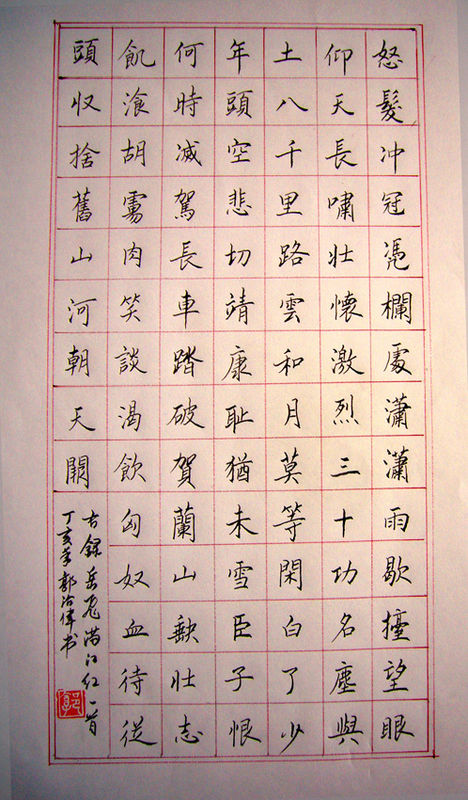 怒髮冲冠凴欄處瀟瀟雨歇擡望眼
仰天長嘯壯懷激烈三十功名塵與
土八千里路雲和月莫等閑白了少
年頭空悲切靖康耻猶未雪臣子恨
何時减駕長車踏破賀蘭山缺壯志
飢湌胡虜肉笑談渴飲匈奴血待從
頭収捨舊山河朝天闕
古録岳飛满江红一首
丁亥年郭治偉书
郭